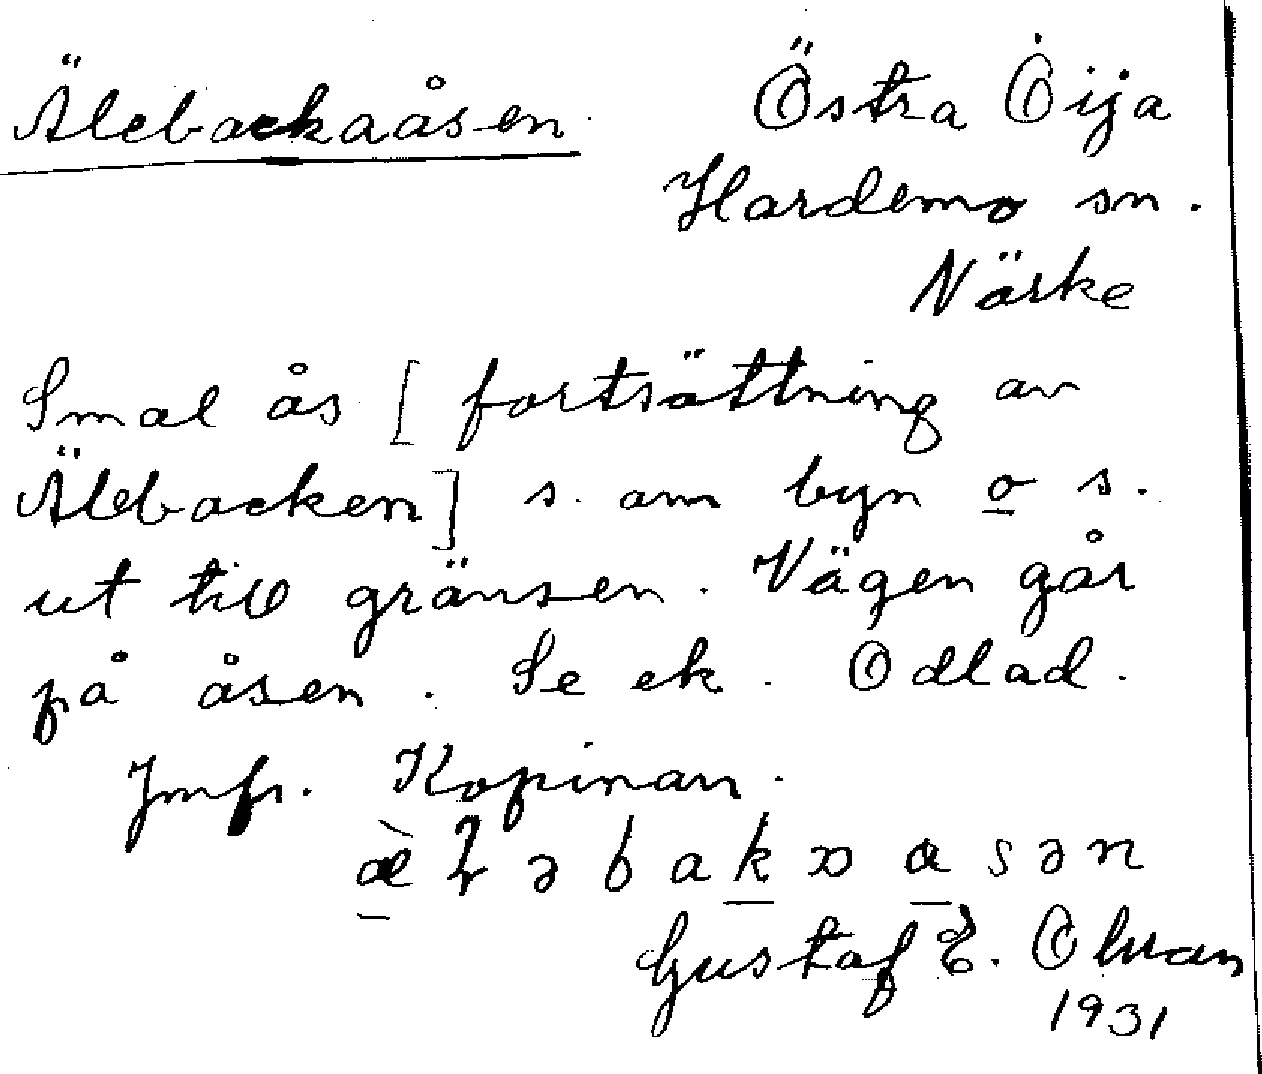 Älebackaåsen
Östra Öija
Hardemo sn.
Närke
Smal ås [ fortsättning av
Älebacken] s. om byn o s.
ut till gränsen. Vägen går
på åsen. Se ek. Odlad.
Jmfr. Kopinan.
Gustaf E.
1931